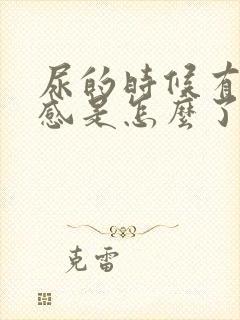 尿的時候有
感是怎麼了
克雷